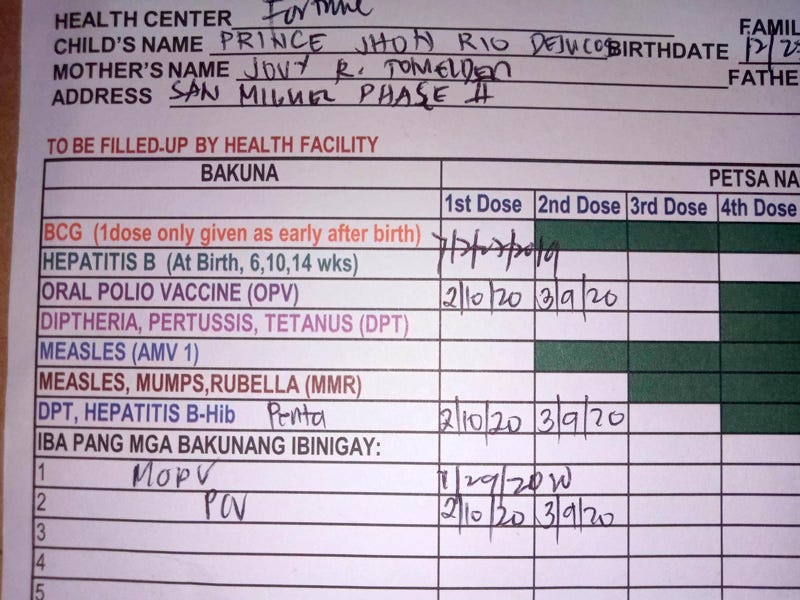 HEALTH CENTER Fortune
FAMIL
CHILD'S NAME PRINCE JHON RIO BIRTHDATE 12/23
MOTHER'S NAME JOVY R. TOMELDEN
FATHE
ADDRESS SAN MIGUEL PHASE II
TO BE FILLED-UP BY HEALTH FACILITY
BAKUNA PETSA NA
1st Dose 2nd Dose 3rd Dose 4th Dose
BCG (1dose only given as early after birth)
HEPATITIS B (At Birth, 6,10,14 wks)
ORAL POLIO VACCINE (OPV) 2/10/20 3/9/20
DIPTHERIA, PERTUSSIS, TETANUS (DPT)
MEASLES (AMV 1)
MEASLES, MUMPS,RUBELLA (MMR)
DPT, HEPATITIS B-Hib Penta 2/10/20 3/9/20
IBA PANG MGA BAKUNANG IBINIGAY:
1 MOPV
2 PCV 2/10/20 3/9/20
3
4
5